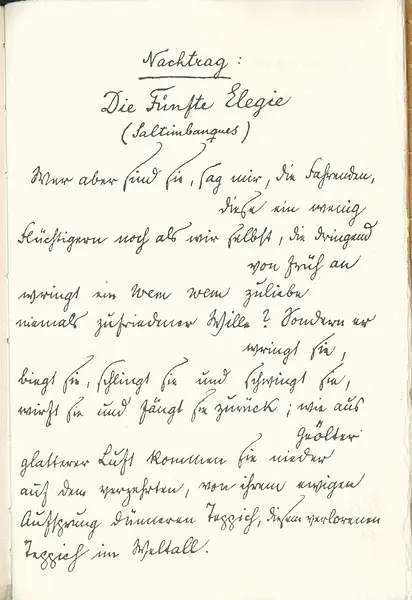 Nachtrag:
Die Fünfte Elegie
(Saltimbanques)
Wer aber sind sie, sag mir, die Fahrenden,
diese ein wenig
Flüchtigern noch als wir selbst, die dringend
von früh an
wringt ein wem wem zuliebe
niemals zufriedener Wille? Sondern er
wringt sie,
biegt sie, schlingt sie und schwingt sie,
wirft sie und fängt sie zurück; wie aus
geölter
glatterer Luft kommen sie nieder
auf dem verzehrten, von ihrem ewigen
Aufsprung dünneren Teppich, diesem verlorenen
Teppich im Weltall.